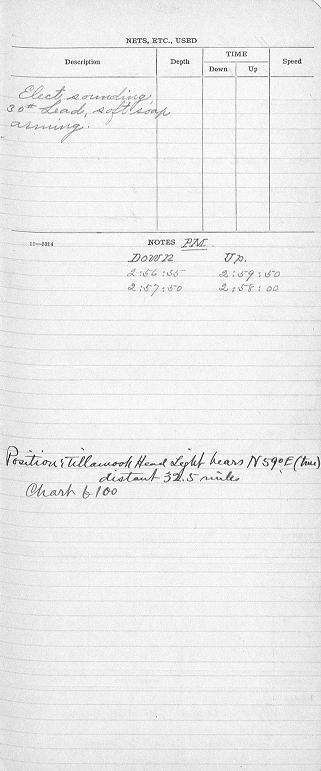 NETS, ETC., USED
Description Depth TIME Speed
Down Up
Elect. sounding
30# Lead, soft soap
arming.
11—5314 NOTES PM.
Down Up.
2:56:55 2:59:50
2:57:50 2:58:00
Position: Tillamook Head Light bears N59°E (true)
distant 32.5 miles
Chart 6100